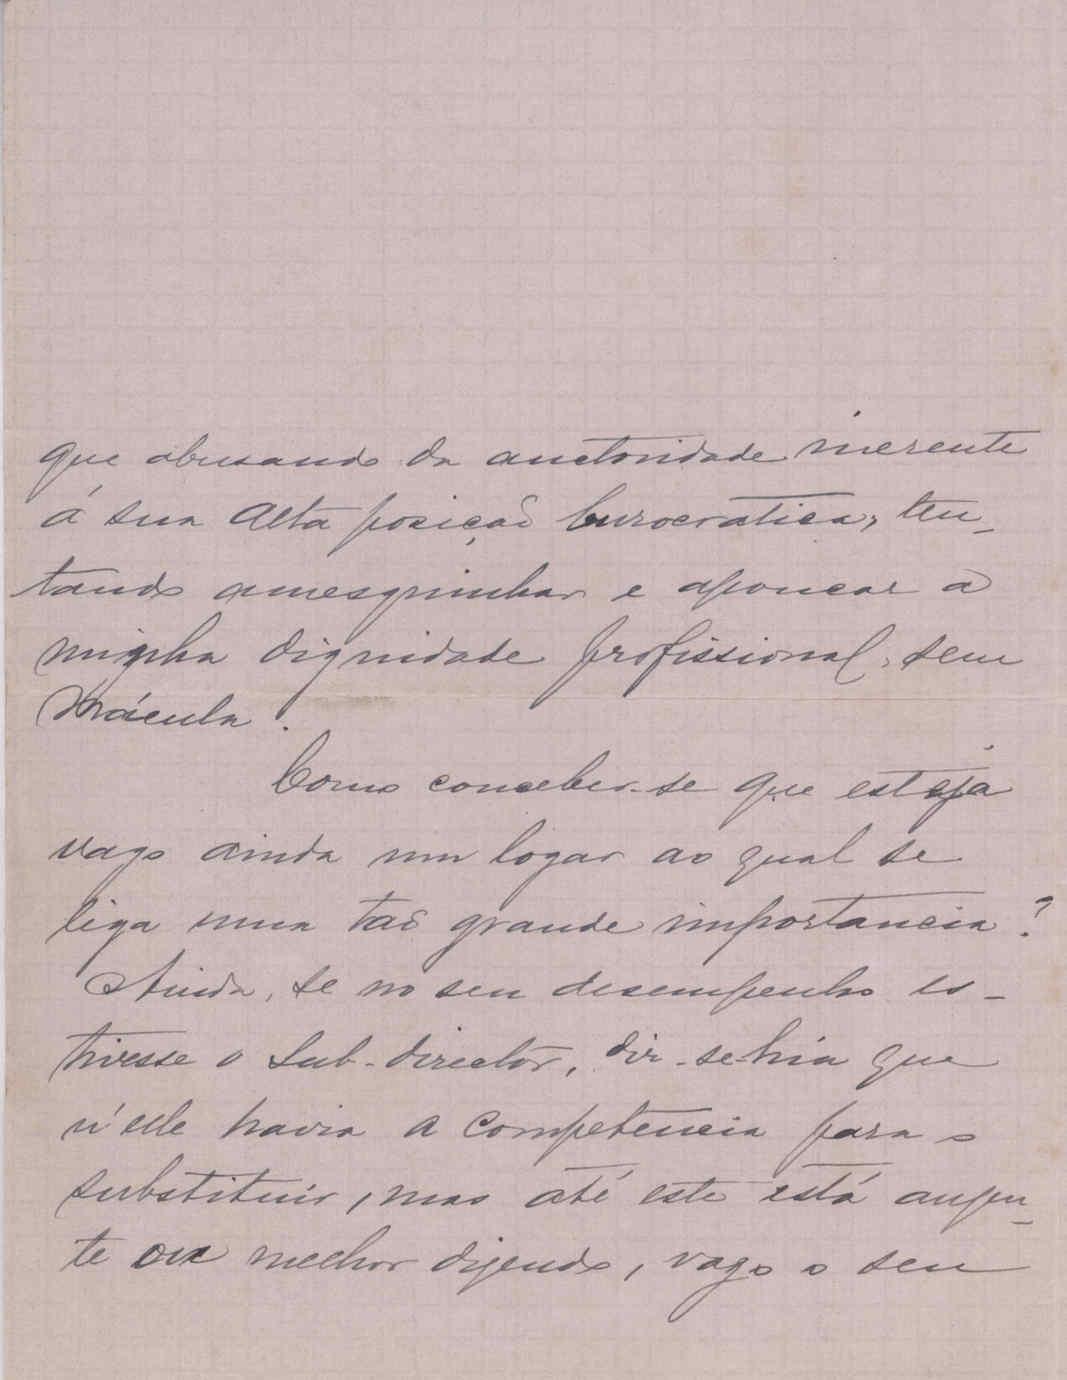 que abusando da auctoridade inerente
á sua Alta posição burocratica, ten-
tando amesquinhar e apoucar a
minha dignidade profissional, sem
Mácula.
Como conceber-se que esteja
vago ainda um logar ao qual se
liga uma tão grande importancia?
Ainda, se no seu desempenho es-
tivesse o Sub-director, dir-se-hia que
n'elle havia a competencia para o
substituir, mas até este está ausen-
te ou melhor dizendo, vago o seu